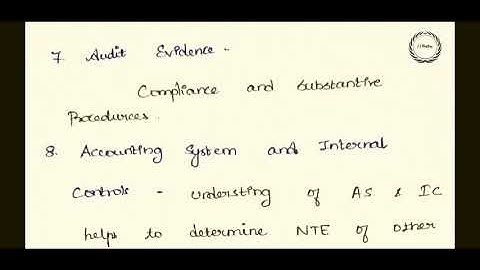 7. Audit Evidence -
Compliance and Substantive
Procedurces.
8. Accounting System and Internal
Controls - understing of AS & IC
helps to determine NTE of other